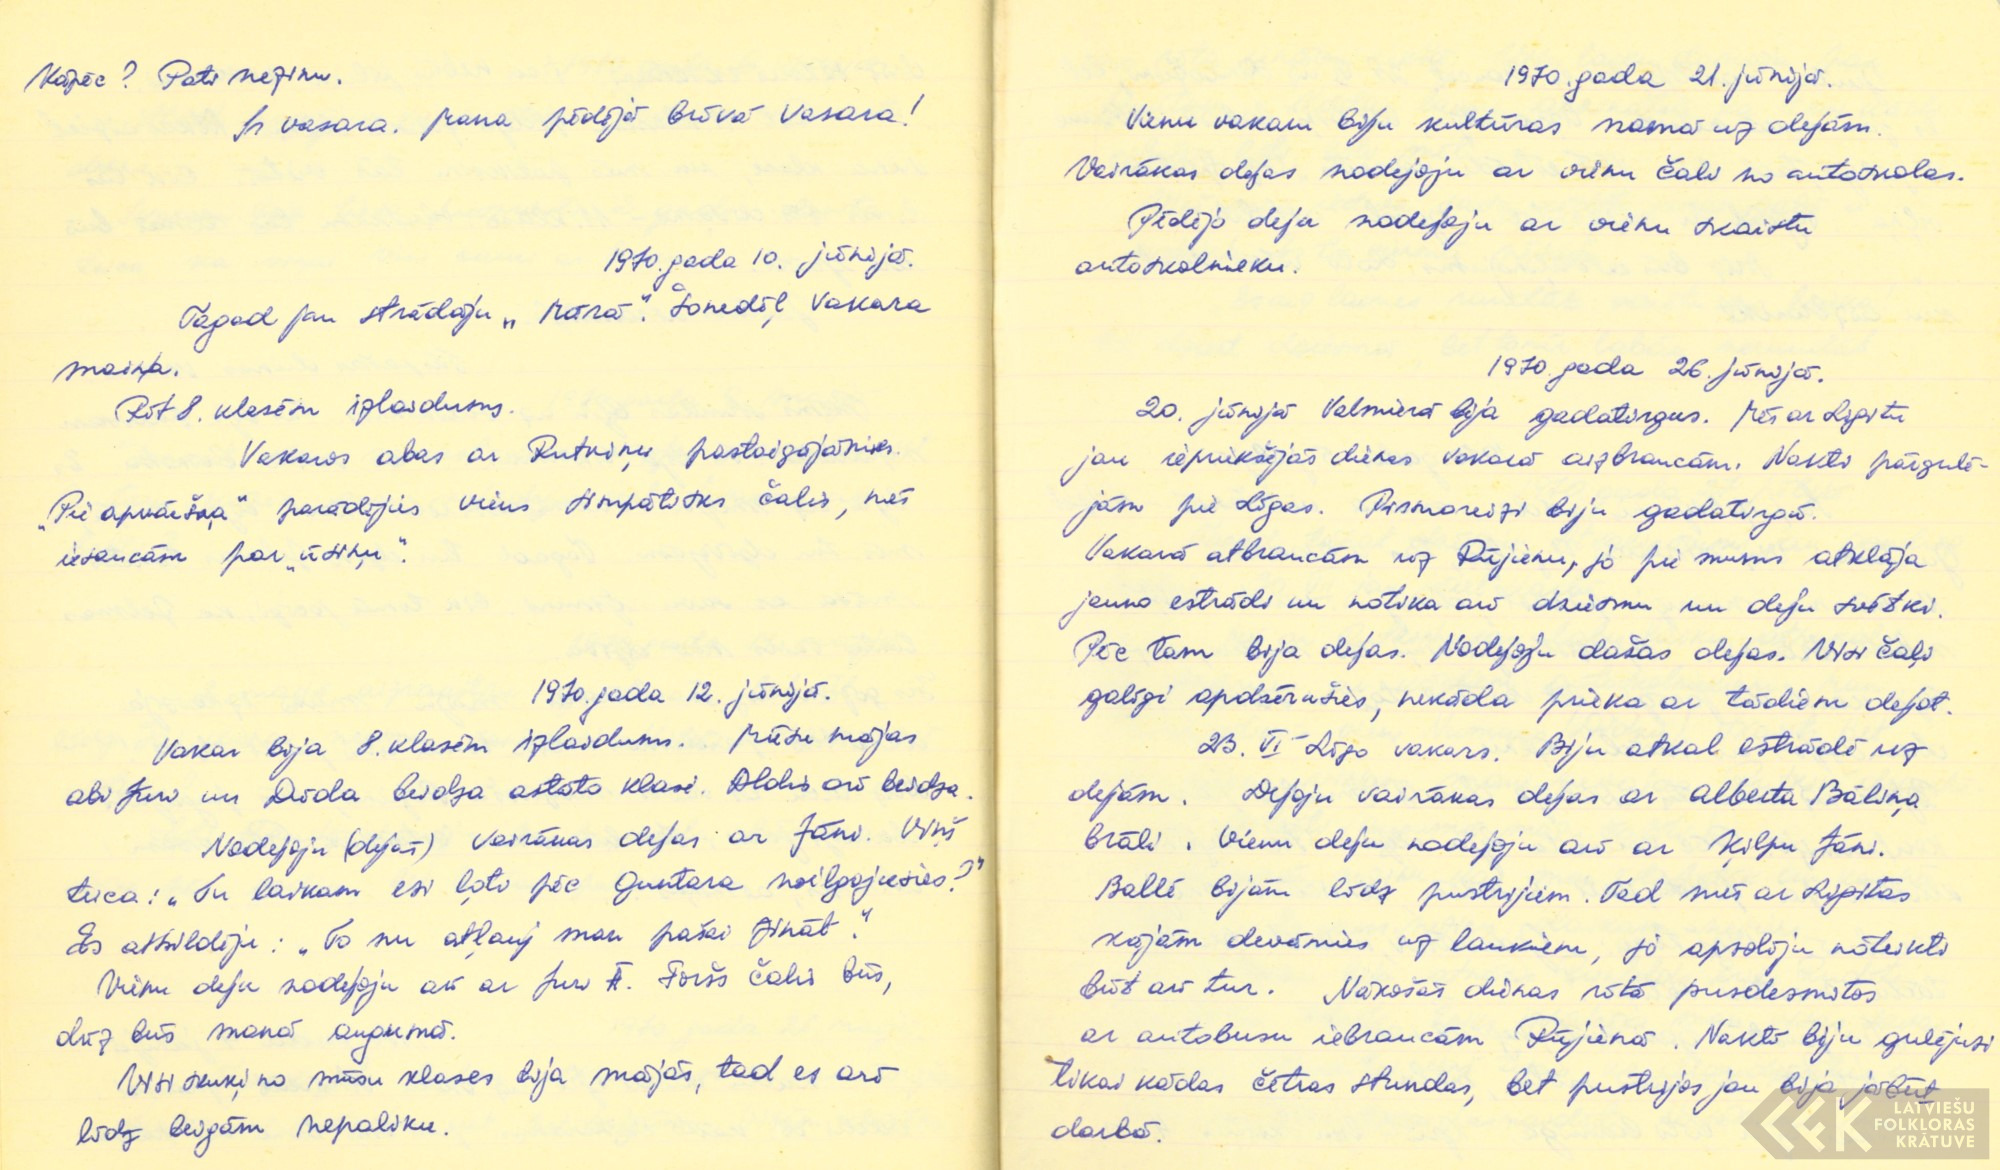 Kāpēc? Pati nezinu.
Ir vasara. Mana pēdējā brīvā vasara!
1970. gada 10. jūnijā.
Tagad jau strādāju „Mārā". Šonedēļ vakara
maiņa.
Rīt 8. klasēm izlaidums.
Vakaros abas ar Rutviņu pastaigājāmies.
„Pie apvāršņa" parādījies viens simpātisks čalis, mēs
iesaucām par „ūsiņu".
1970. gada 12. jūnijā.
Vakar bija 8. klasēm izlaidums. Mūsu mājas
abi Juri un Daida beidza astoto klasi. Aldis arī beidza.
Nodejoju (dejas) vairākas dejas ar Jāni. Viņš
teica: „Tu laikam esi ļoti pēc Guntara noilgojusies?"
Es atbildēju: „To nu atļauj man pašai zināt".
Vienu deju nodejoju arī ar Juri A. Foršs čalis būs,
drīz būs manā augumā.
Visi skuķi no mūsu klases bija mājās, tad es arī
līdz beigām nepaliku.
1970. gada 21. jūnijā.
Vienu vakaru biju kultūras namā uz dejām.
Vairākas dejas nodejoju ar vienu čali no autoskolas.
Pēdējo deju nodejoju ar vienu skaistu
autoskolnieku.
1970. gada 26. jūnijā.
20. jūnijā Valmierā bija gadatirgus. Mēs ar Ligitu
jau iepriekšējās dienas vakarā aizbraucām. Nakti pārgulē-
jām pie Līgas. Pirmoreizi biju gadatirgū.
Vakarā atbraucām uz Rūjienu, jo pie mums atklāja
jauno estrādi un notika arī dziesmu un deju svētki.
Pēc tam bija dejas. Nodejoju dažas dejas. Visi čaļi
galīgi apdzērušies, nekāda prieka ar tādiem dejot.
23. VI Līgo vakars. Biju atkal estrādē uz
dejām. Dejoju vairākas dejas ar Alberta Bāliņa
brāli. Vienu deju nodejoju arī ar Ķilpu Jāni.
Ballē bijām līdz pustrijiem. Tad mēs ar Ligitas
kājām devāmies uz laukiem, jo apsolīju noteikti
būt arī tur. Nākošās dienas rītā pusdesmitos
ar autobusu iebraucām Rūjienā. Naktī biju gulējusi
tikai kādas četras stundas, bet pustrijos jau bija jābūt
darbā.
LATVIEŠU
FOLKLORAS
KRĀTUVE